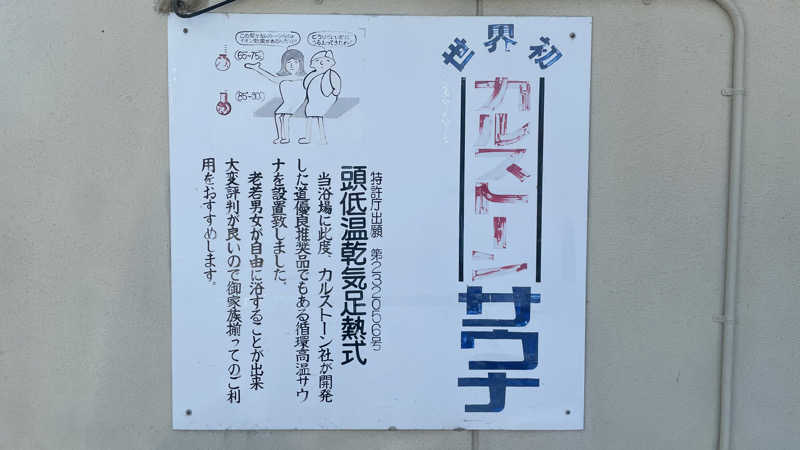 世界初
カルストーン
サウナ
特許庁出願
頭低温乾気足熱式
当浴場に此度、カルストーン社が開発
した道優良推奨品でもある循環高温サウ
ナを設置致しました。
老若男女が自由に浴することが出来
大変評判が良いので御家族揃ってのご利
用をおすすめします。